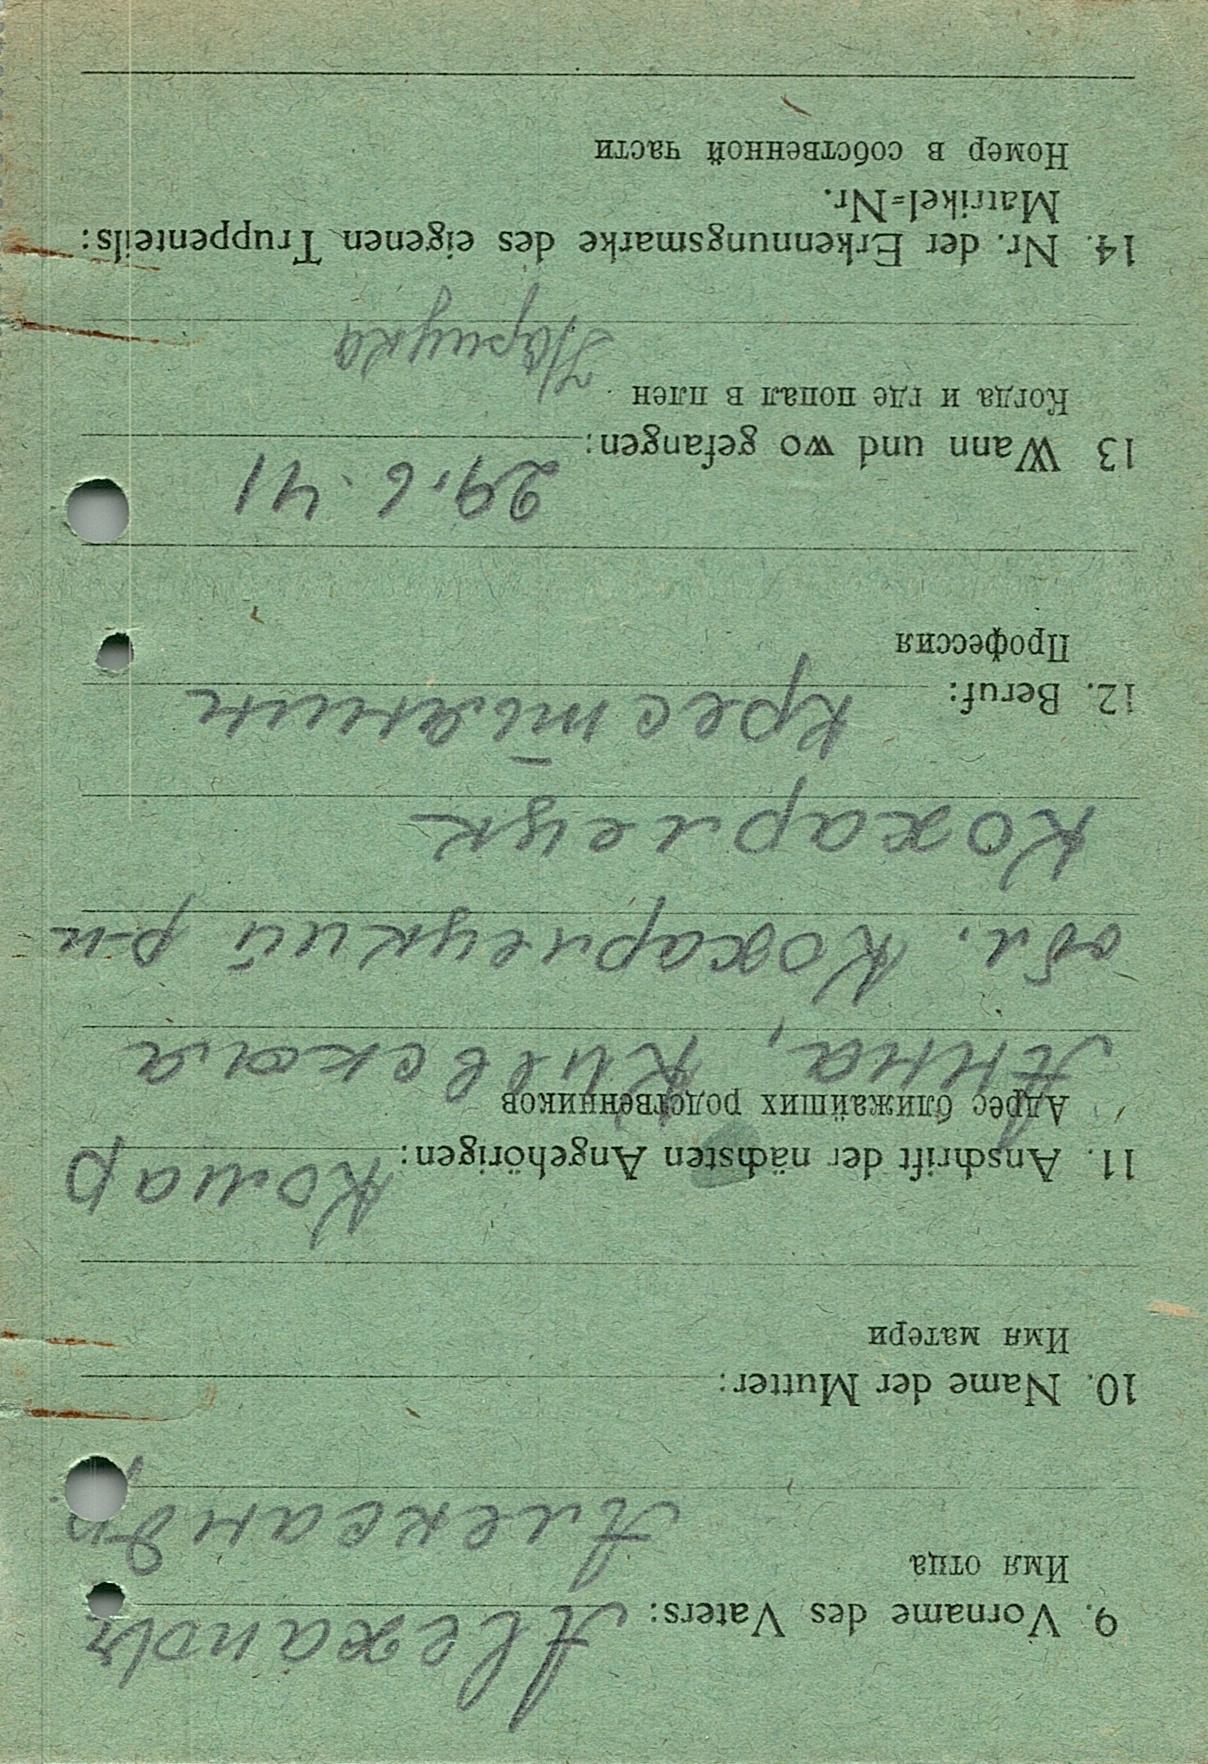 9. Vorname des Vaters: Alexandr
Имя отца
Александр
10. Name der Mutter:
Имя матери
11. Anschrift der nächsten Angehörigen: Комар
Адрес ближайших родственников
Анна, Киевская
обл. Кохарлецкий р-н
Кохарлецк
12. Beruf: крестianин
Профессия
13 Wann und wo gefangen: 29.6.41
Когда и где попал в плен
14. Nr. der Erkennungsmarke des eigenen Truppenteils:
Matrikel=Nr.
Номер в собственной части